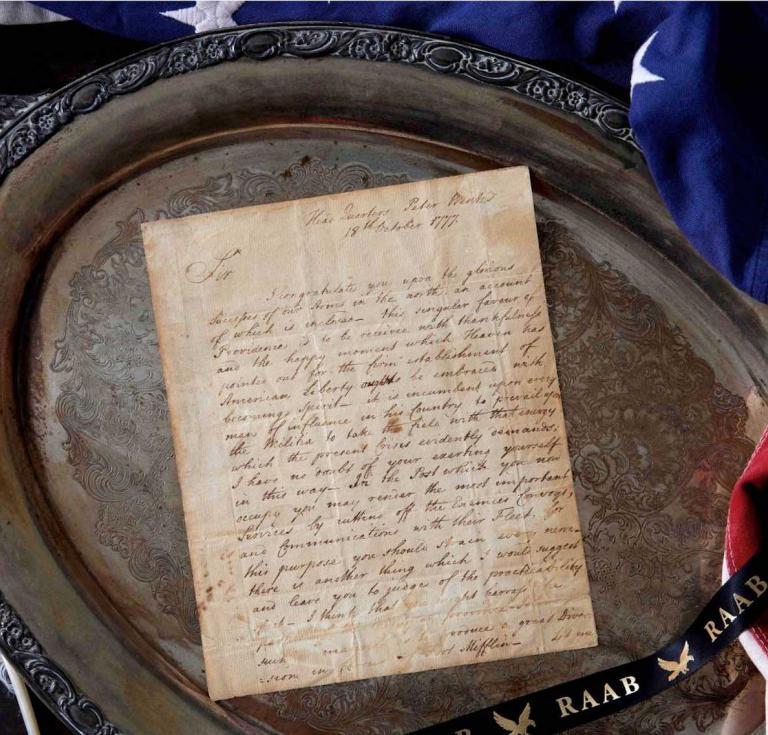 Head Quarters Peter Wentz's
18th October 1777.
Sir
I congratulate you upon the glorious
Success of our Arms in the north an account
of which is inclosed— this singular favour of
Providence is to be received with thankfulness
and the happy moment which Heaven has
pointed out for the firm establishment of
American Liberty ought to be embraced with
becoming Spirit— it is incumbent upon every
man of influence in his Country to prevail upon
the Militia to take the field with that energy
which the present Crisis evidently demands.
I have no doubt of your exerting yourself
in this way— In the Post which you now
occupy you may render the most important
Services by cutting off the Enemies Convoys,
and Communications with their Fleet, for
this purpose you should strain every nerve—
there is another thing which I would suggest
and leave you to judge of the practicability
I think that
such a great Diver
sion Mifflin— Let me
B RAAB RAAB